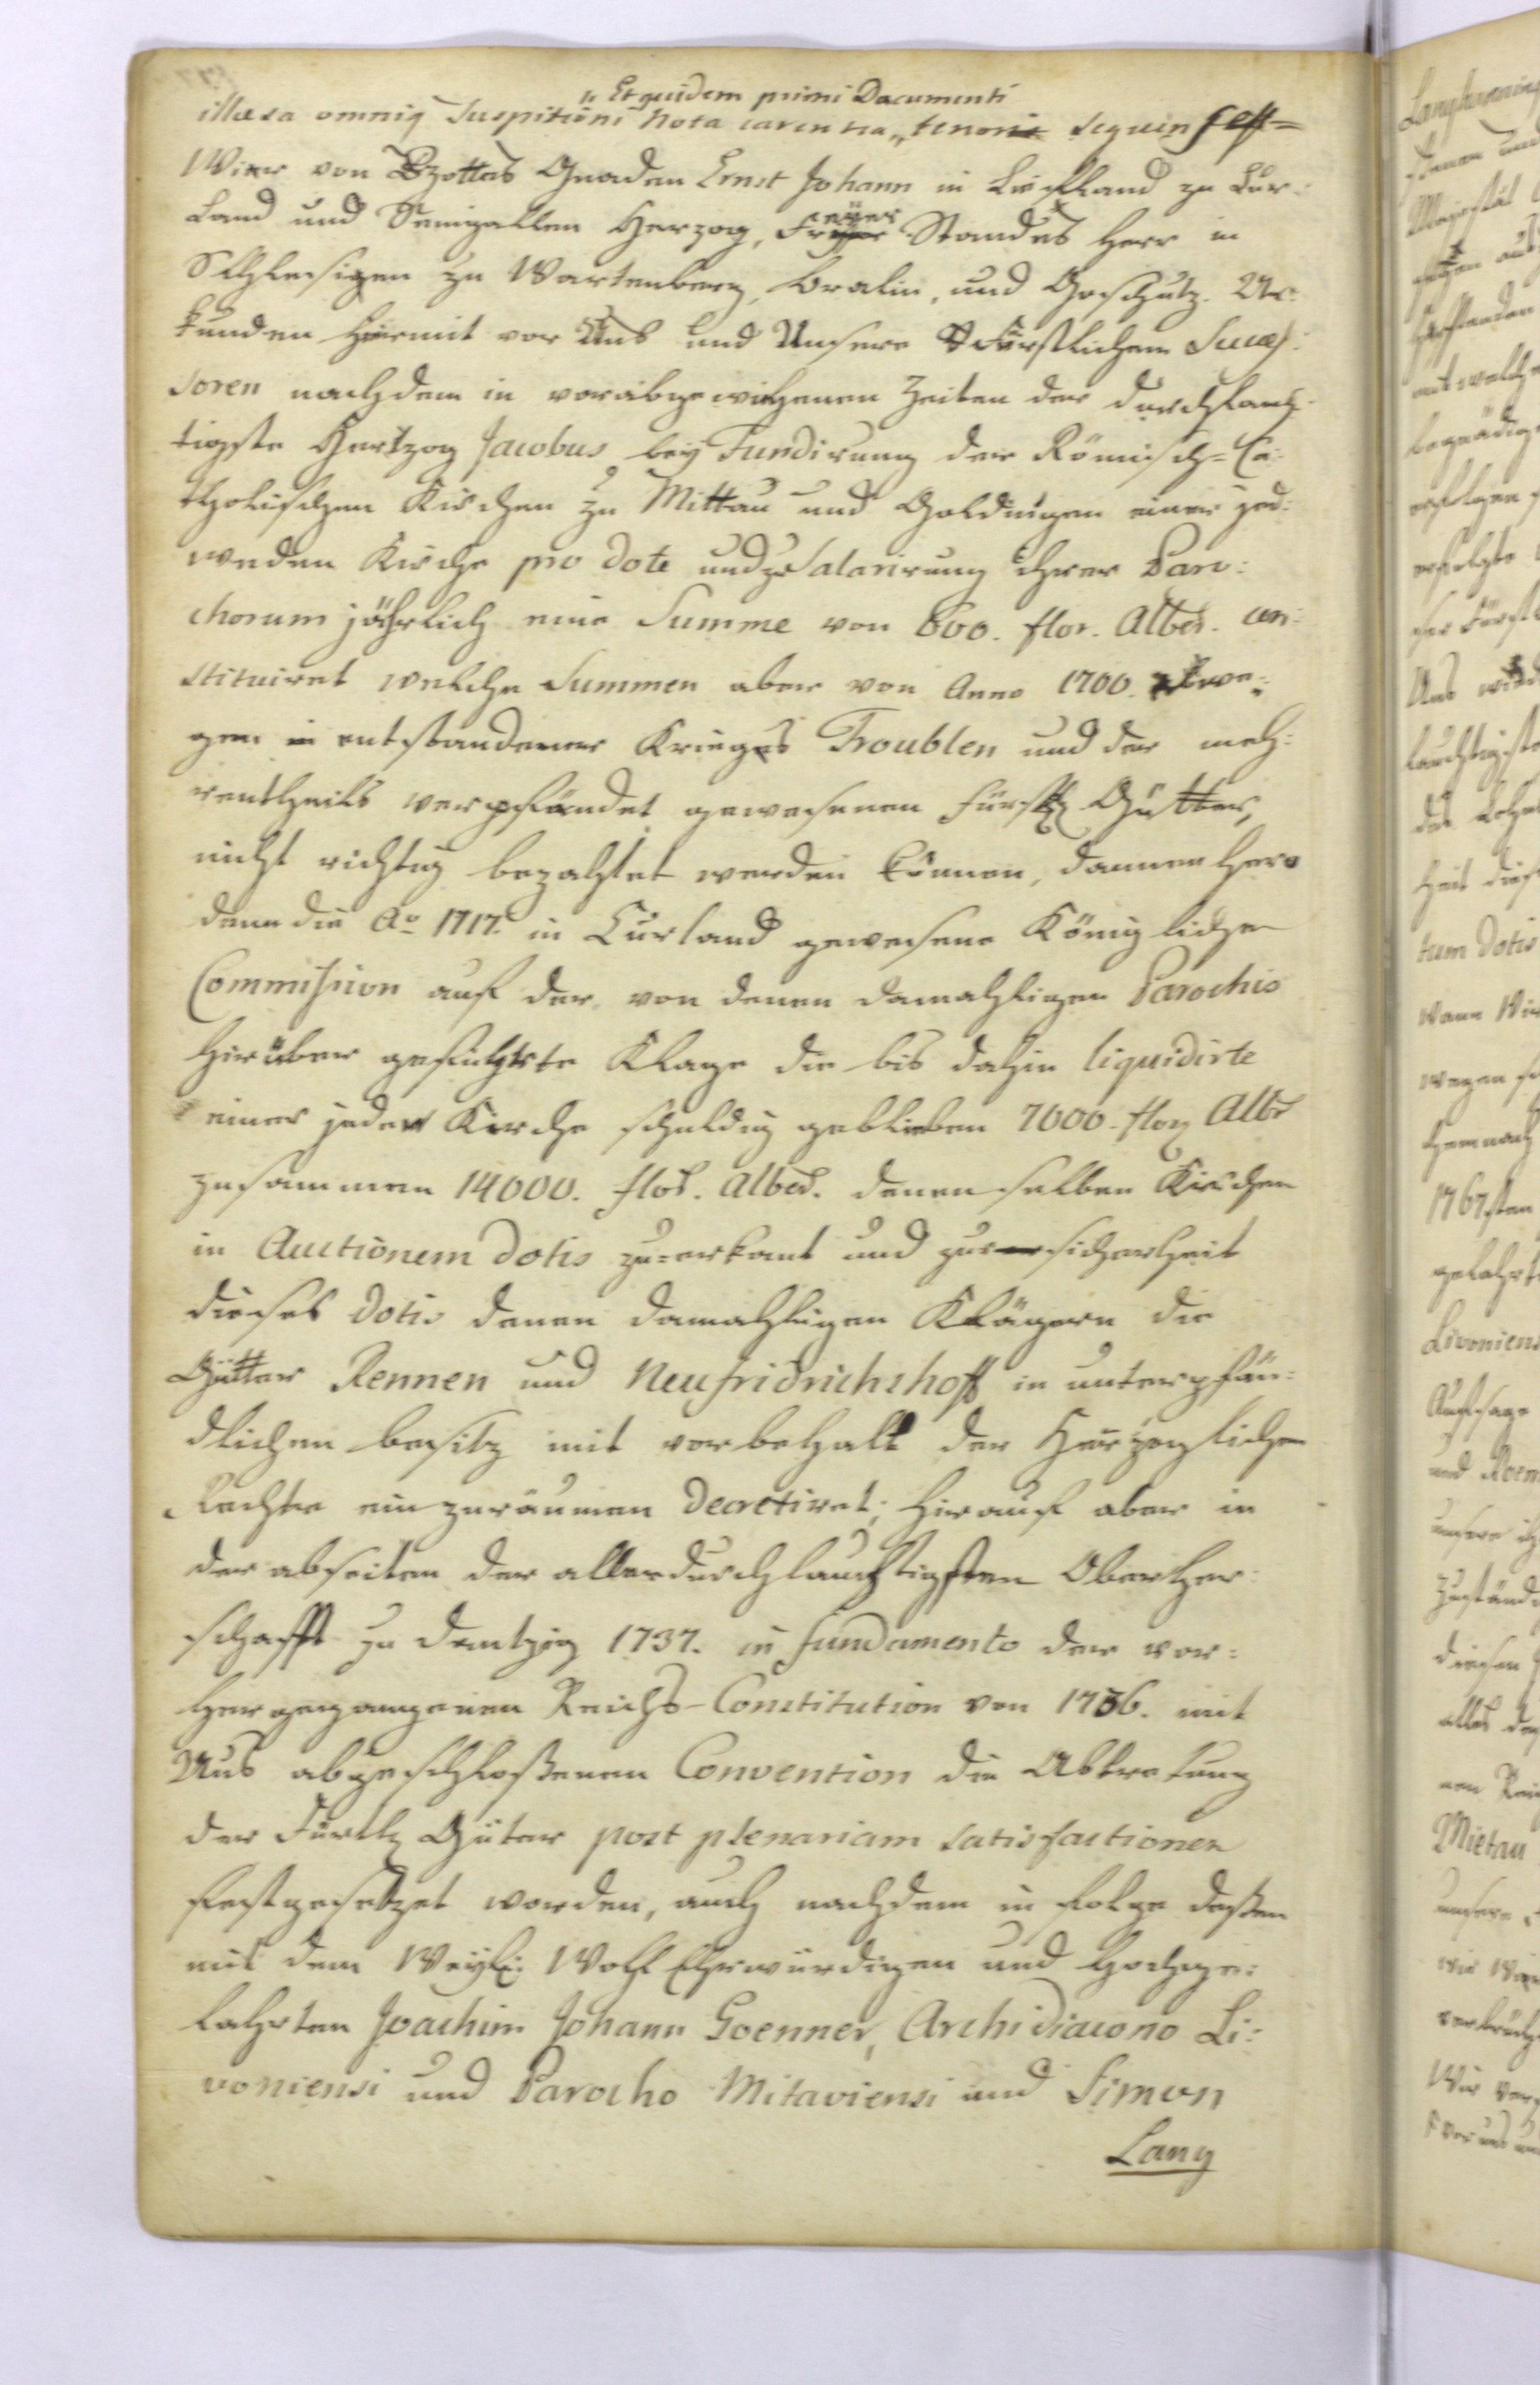 „ Et quidem primi Documenti
illæsa omniq Suspitioni Nota carentia „ tenoris sequin
Wier von Gottes Gnaden Ernst Johann in Liefland zu Cur-
Land und Semgallen Herzog, Freyer Standes Herr in
Schlesigen zu Wartenberg, Bralin, und Goschutz. Ur-
kunden hiermit vor Uns und Unsere Fürstlichen Succes-
soren nachdem in vorabgewichenen Zeiten der durchlauch-
tigste Hertzog Jacobus bey Fundirung der Römisch=Ca-
tholischen Kirchen zu Mittau und Goldingen einer jed-
weden Kirche pro dote und zu Salarirung ihrer Paro:
chorum jährlich eine Summe von 600. flor. Albed. con-
stituiret welche Summen aber von Anno 1700. we:
gen entstandener Krieges Troublen und der meh:
rentheils verpfändet gewesenen fürstl Gütter,
nicht richtig bezahlet werden können, dannenhero
denn die Ao 1717. in Curland gewesene Königliche
Commission auf der von denen damahligen Parochis
hierüber geführte Klage die bis dahin liquidirte
einer jeden Kirche schuldig geblieben 7000. flor Albr
zusammen 14000. flor. Albed. denenselben Kirchen
in Auctionem dotis zu=erkant und zur sicherheit
dieses dotis denen damahligen Klägern die
Gütter Rennen und Neufridrichshoff in unterpfän:
dlichen besitz mit vorbehalt der Herzoglichen
Rechte einzuräumen decretiret; hierauf aber in
der abseiten der allerdurchlauchtigsten Oberher:
schafft zu dantzig 1737. in fundamento der vor:
hergegangenen Reichs-Constitution von 1736. mit
Uns abgeschloßenen Convention die Abtretung
der Fürstl Güter post plenariam satisfactionem
festgesetzet worden, auch nachdem in folge deßen
mit dem Weyl: WohlEhrwürdigen und Hochge:
lahrten Joachim Johann Goenner, Archidiacono Li:
voniensi und Parocho Mitaviensi und Simon
Lang